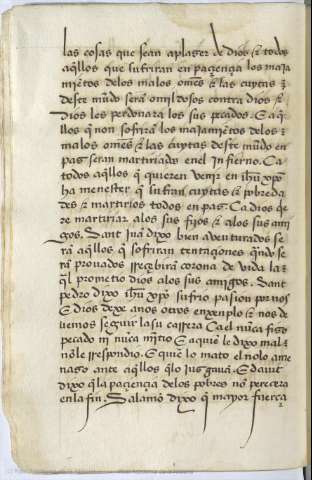 las cosas que sean aplazer de dios & todos
aq̃llos que sufriran en paçiençia los maia
miẽtos delos malos om̃es & las cuytas q̃
deste mũdo serã omildosos contra dios &
dios les perdonara los sus pecados. E aq̃
llos q̃ non sofrirã los maiamiẽtos delos
malos om̃es & las cuytas deste mũdo en
paz seran martiriados enel Infierno. Ca
todos aq̃llos q̃ quieren venir en ihũ xp̃o
ha menester q̃ sufran cuytas & pobreda
des & martirios todos en paz. Ca dios q̃e
re martiriar alos sus fijos & alos sus ami
gos. Sant Juã dixo bien auenturados se
rã aq̃llos q̃ sofriran tentaçiones q̃ndo se
rã prouados Resçebirã corona de vida la
q̃l prometio dios alos sus amigos. Sant
pedro dixo ihũ xp̃o sufrio pasion por nos
E dios dexe anos otros enxenplo & nos de
uemos seguir la su carrera Ca el nũca fizo
pecado ni nũca mĩtio E aquiẽ le dixo mal
nõle respondio. E quiẽ lo mato el nolo ame
nazo ante aq̃llos q̃lo juzgauã. E dauit
dixo q̃la paçiençia delos pobres nõ pereçera
enla fin. Salamõ dixo q̃ mayor fuerça